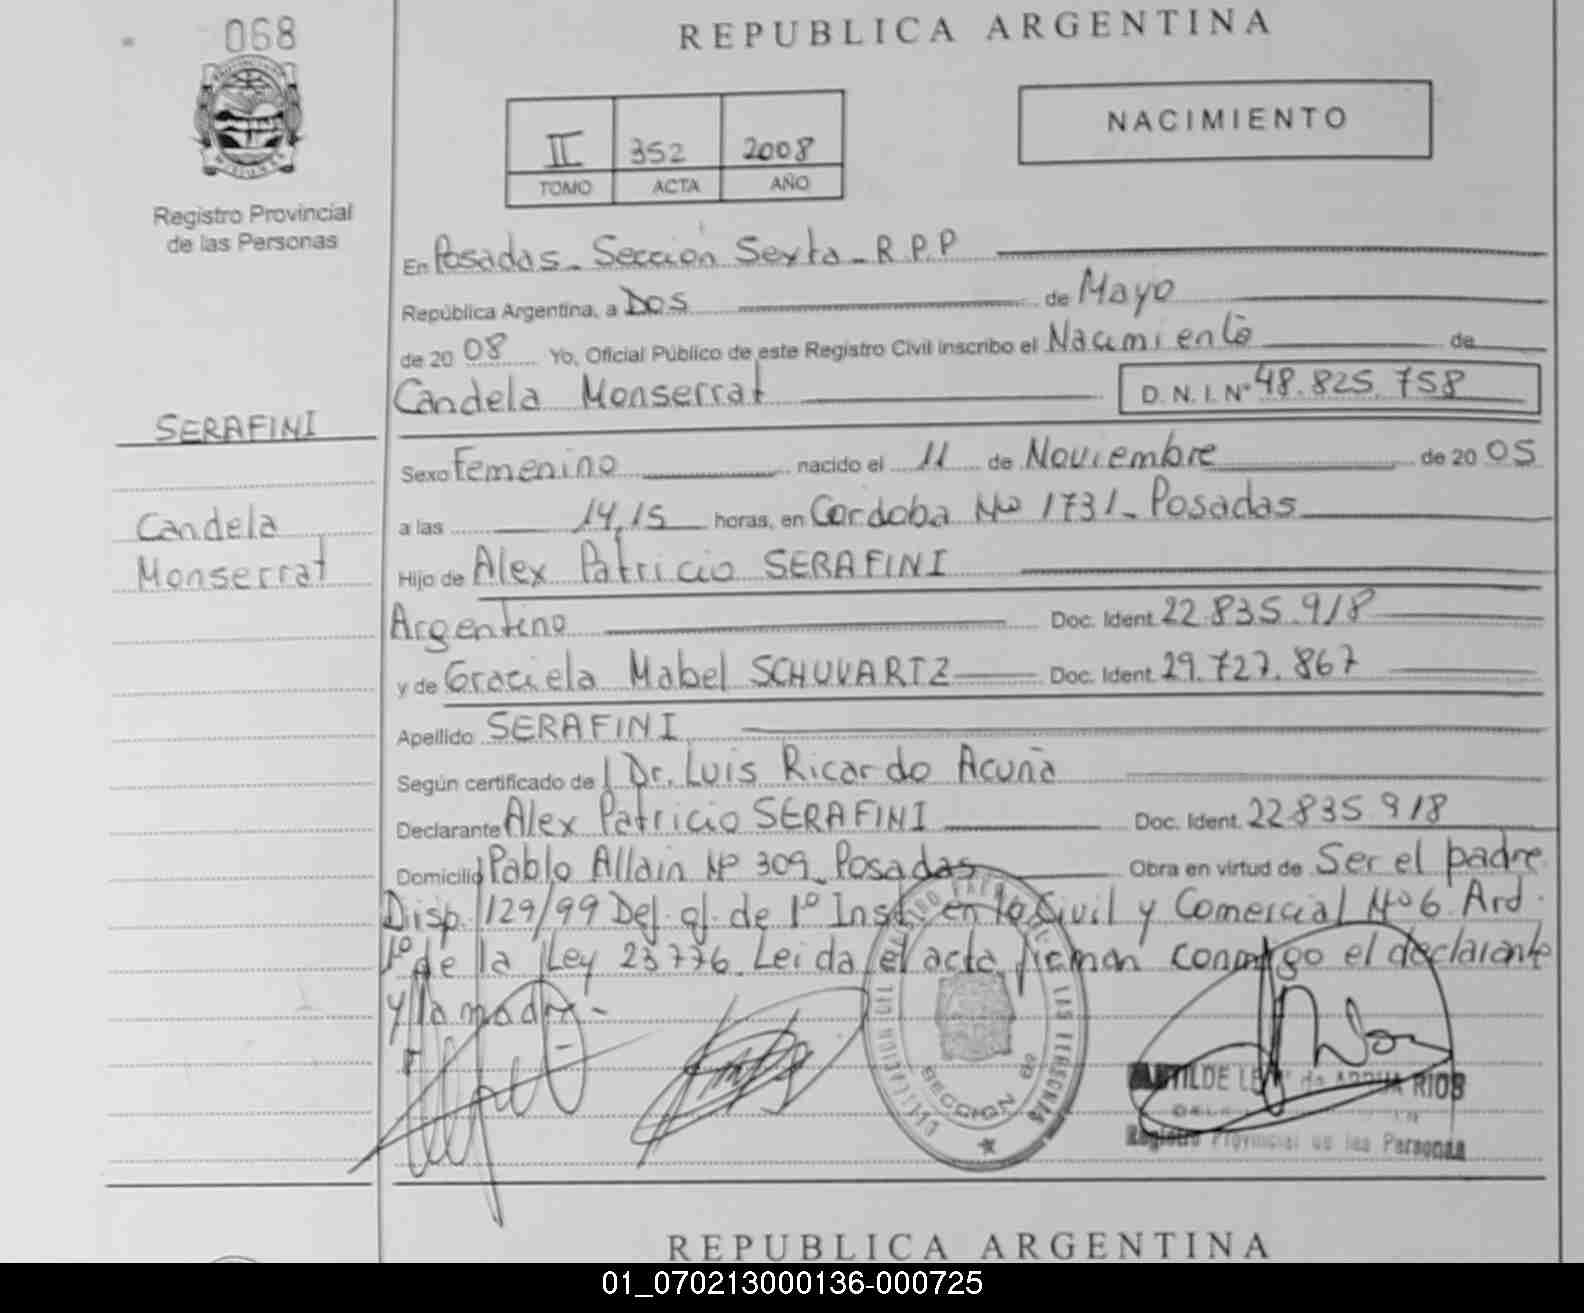 068
REPUBLICA ARGENTINA
II 352 2008
TOMO ACTA AÑO
NACIMIENTO
Registro Provincial
de las Personas
En Posadas - Sección Sexta - R.P.P
República Argentina, a Dos de Mayo
de 20 08 Yo, Oficial Público de este Registro Civil inscribo el Nacimiento de
Candela Monserrat D.N.I.Nº 48.825.758
SERAFINI
Sexo Femenino nacido el 11 de Noviembre de 20 05
Candela
a las 14,15 horas, en Cordoba Nº 1731 - Posadas
Monserrat
Hijo de Alex Patricio SERAFINI
Argentino Doc. Ident. 22.835.918
y de Graciela Mabel SCHUVARTZ Doc. Ident. 29.727.867
Apellido SERAFINI
Según certificado de Dr. Luis Ricardo Acuña
Declarante Alex Patricio SERAFINI Doc. Ident. 22835918
Domicilio Pablo Allain Nº 309 - Posadas Obra en virtud de Ser el padre
Disp. 129/99 Def. of. de 1º Inst. en lo Civil y Comercial Nº 6. Ard.
1º de la Ley 23776. Leida el acta, firman conmigo el declarante
y la madre -
SECCION 6ª
RIOS
Registro Provincial de las Personas
REPUBLICA ARGENTINA
01_070213000136-000725